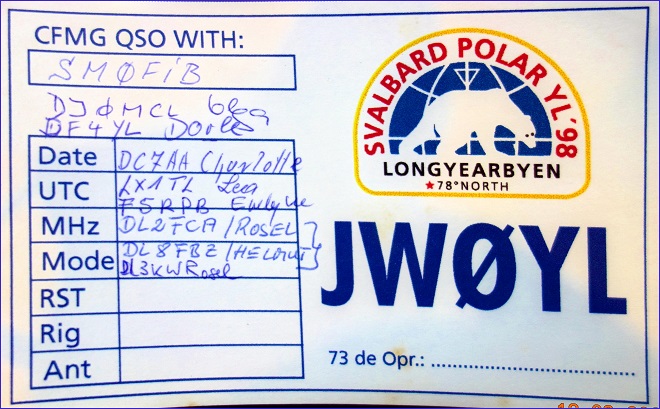 CFMG QSO WITH:
SMØFIB
DJØMCL
DF4YL Dorle
Date
DC7AA Charlotte
UTC
LX1TL Lea
F5RPB Evelyne
MHz
DL2FCA/ROSEL
Mode
DL8FBZ/HELMUT
DL3KWRosel
RST
Rig
Ant
SVALBARD POLAR YL '98
LONGYEARBYEN
★78°NORTH
JWØYL
73 de Opr.: ................................